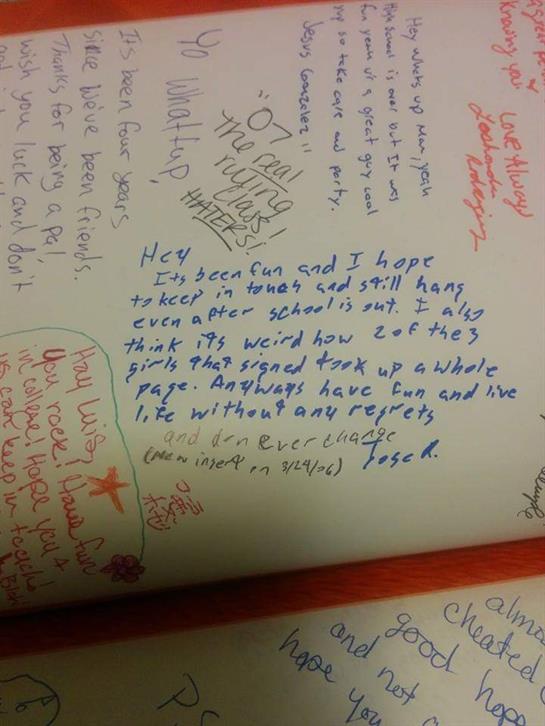 Knowing you
Love Always
Hey Whats up Man, yeah
High school is over but It was
fun yeah u'r a great guy cool
so take care and party.
Jesus Gonzalez
"07
the real
ruling
class!
HATERS!
Yo Whattup,
Its been four years
since We've been friends.
Thanks for being a pal,
wish you luck and don't
Hey
Its been fun and I hope
to keep in touch and still hang
even after school is out. I also
think its weird how 2 of the 3
girls that signed took up a whole
page. Anyways have fun and live
life without any regrets
and don ever change
(new insert on 3/24/06)
Jose R.
Hay Luis,
You rock! Have fun
in college! Hope you &
us can keep in touch!
almo
cheated
good hope
and not
hope you
P.S